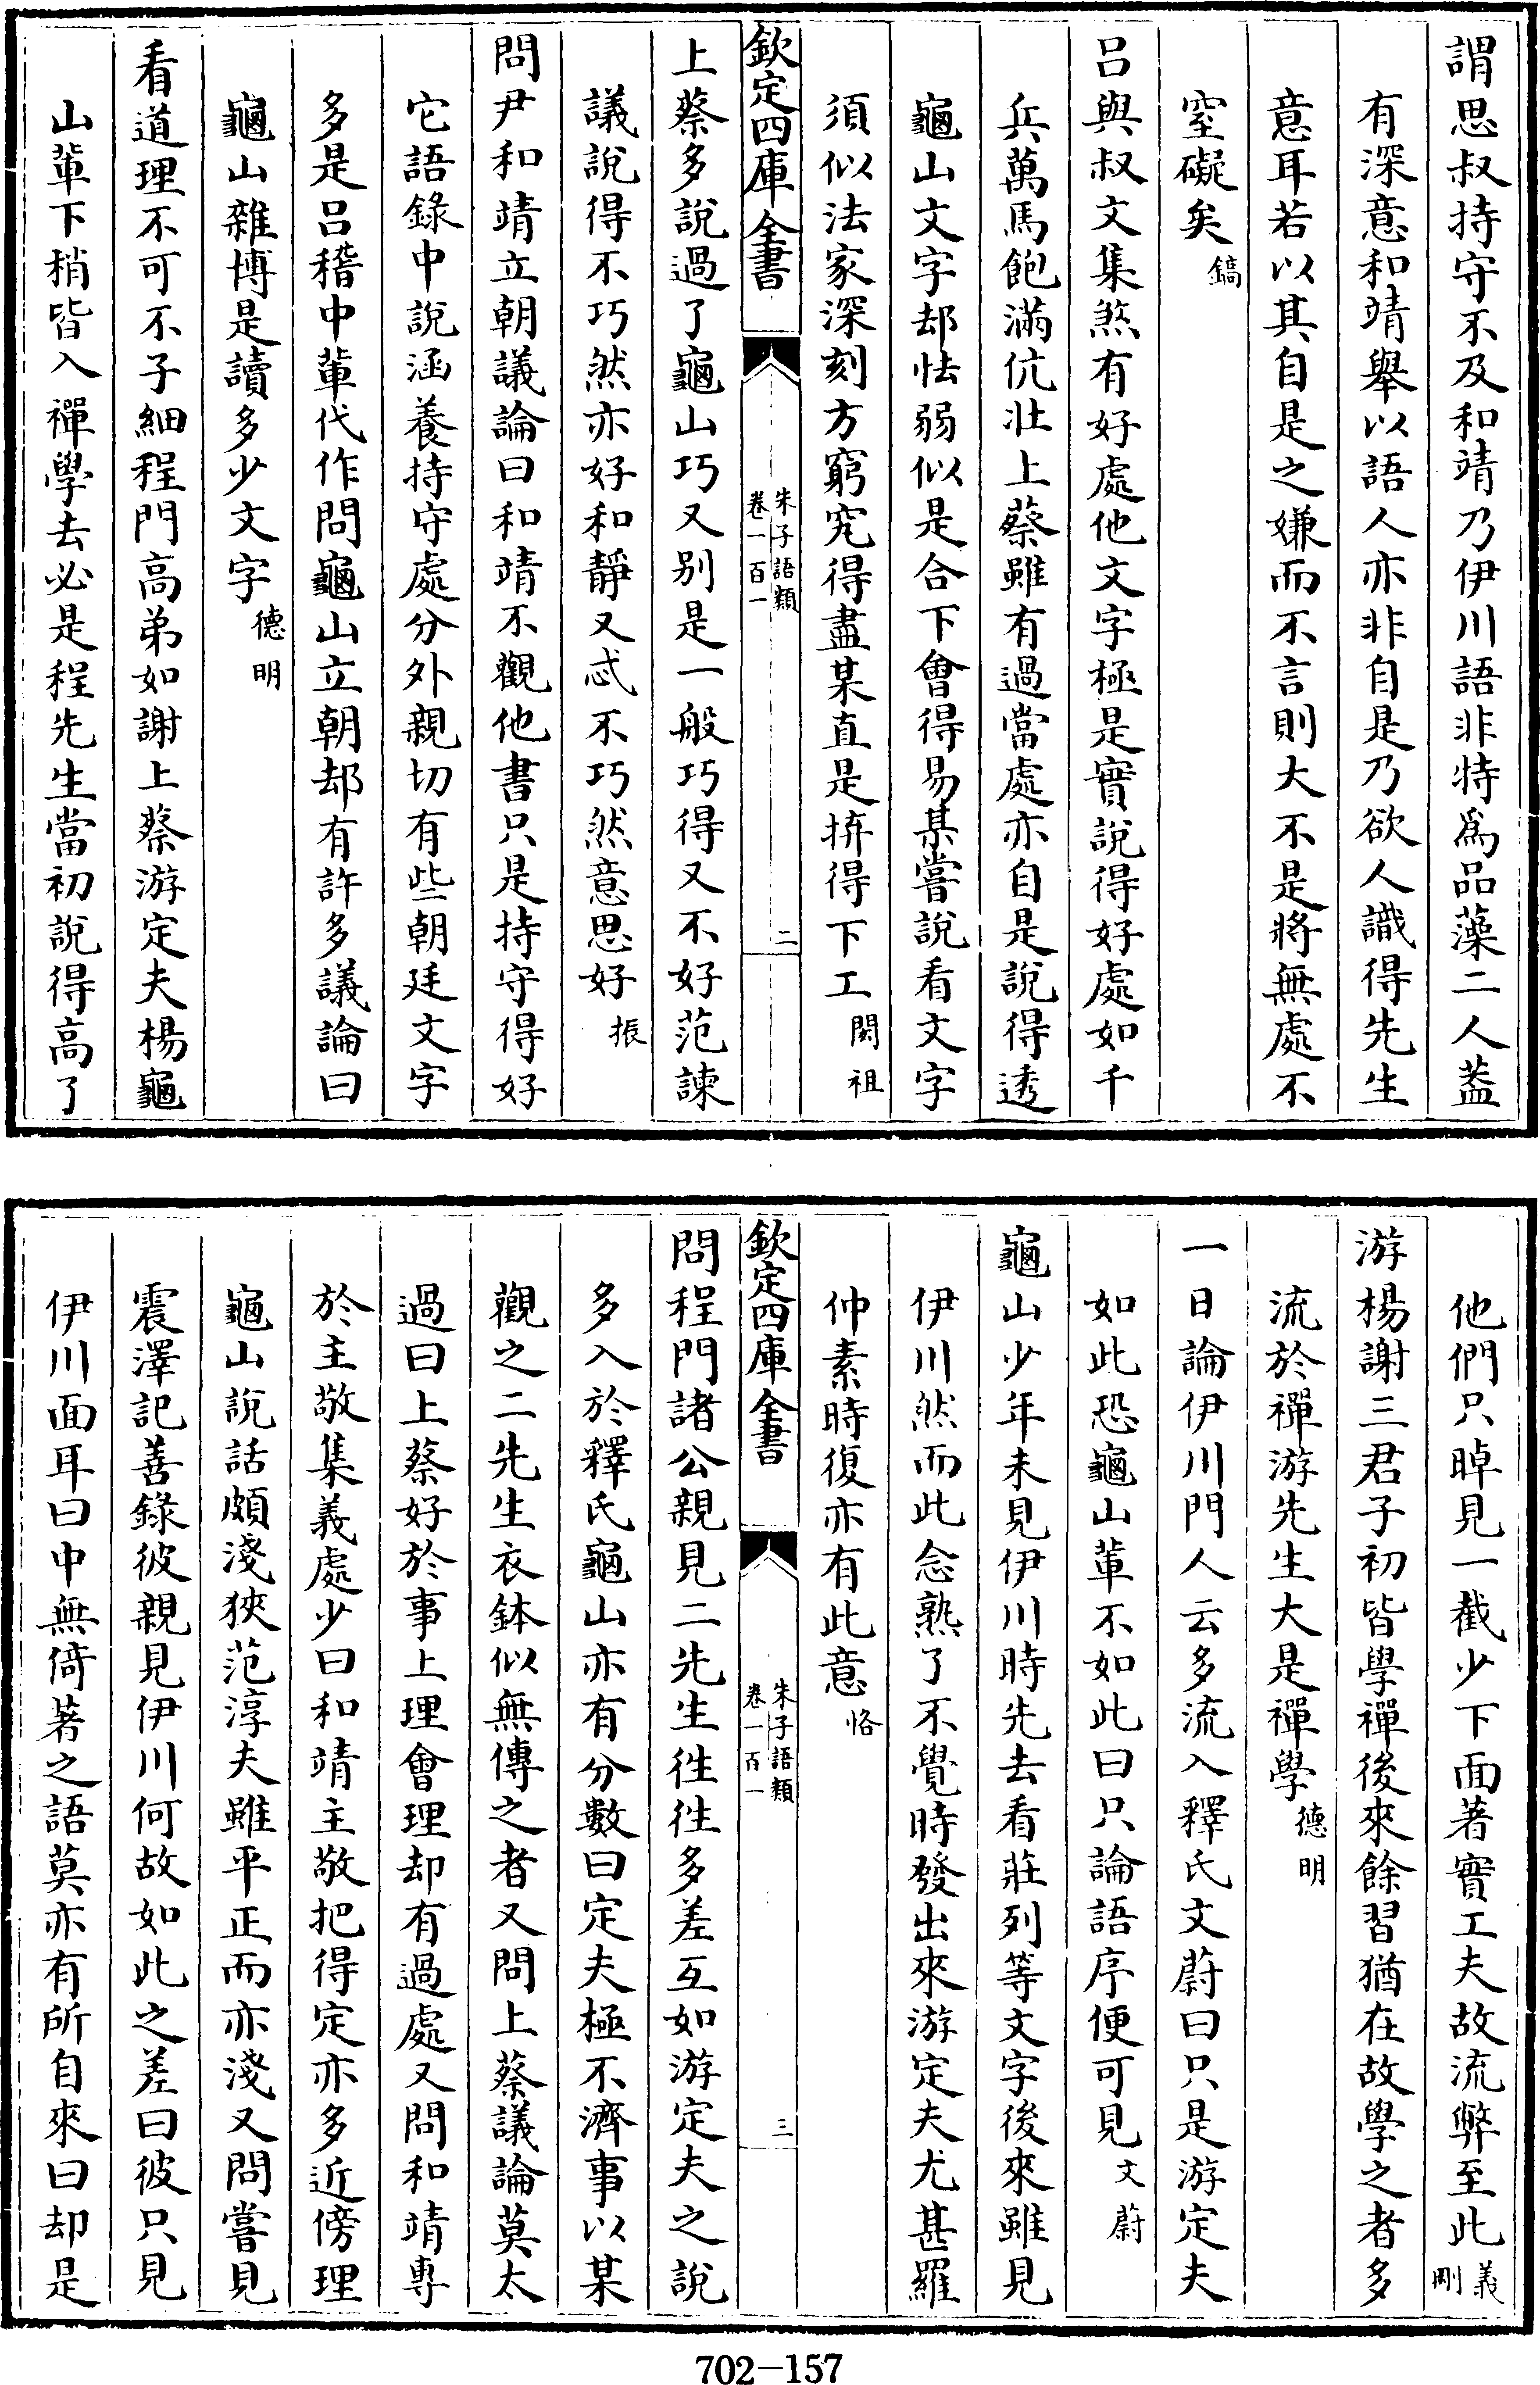 謂思叔持守不及和靖乃伊川語非特爲品藻二人葢
有深意和靖舉以語人亦非自是乃欲人識得先生
意耳若以其自是之嫌而不言則大不是將無處不
窒礙矣鎬
呂與叔文集煞有好處他文字極是實說得好處如千
兵萬馬飽滿伉壯上蔡雖有過當處亦自是說得透
龜山文字却怯弱似是合下會得易某嘗說看文字
須似法家深刻方窮究得盡某直是拚得下工閎祖
欽定四庫全書
朱子語類
卷一百一
二
上蔡多說過了龜山巧又别是一般巧得又不好范諫
議說得不巧然亦好和靜又忒不巧然意思好振
問尹和靖立朝議論曰和靖不觀他書只是持守得好
它語錄中說涵養持守處分外親切有些朝廷文字
多是呂稽中輩代作問龜山立朝却有許多議論曰
龜山雜博是讀多少文字德明
看道理不可不子細程門高弟如謝上蔡游定夫楊龜
山輩下梢皆入禪學去必是程先生當初說得高了
他們只晫見一截少下面著實工夫故流弊至此義剛
游楊謝三君子初皆學禪後來餘習猶在故學之者多
流於禪游先生大是禪學德明
一日論伊川門人云多流入釋氏文蔚曰只是游定夫
如此恐龜山輩不如此曰只論語序便可見文蔚
龜山少年未見伊川時先去看莊列等文字後來雖見
伊川然而此念熟了不覺時發出來游定夫尤甚羅
仲素時復亦有此意恪
欽定四庫全書
朱子語類
卷一百一
三
問程門諸公親見二先生徃徃多差互如游定夫之說
多入於釋氏龜山亦有分數曰定夫極不濟事以某
觀之二先生衣鉢似無傳之者又問上蔡議論莫太
過曰上蔡好於事上理會理却有過處又問和靖專
於主敬集義處少曰和靖主敬把得定亦多近傍理
龜山說話頗淺狹范淳夫雖平正而亦淺又問嘗見
震澤記善錄彼親見伊川何故如此之差曰彼只見
伊川面耳曰中無倚著之語莫亦有所自來曰却是
702-157